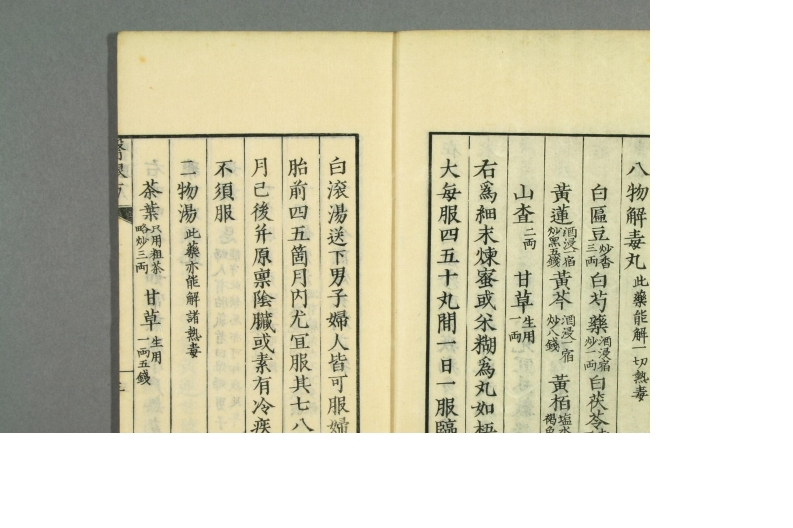 八物解毒丸 此藥能解一切熱毒
白匾豆 炒香三兩 白芍藥 酒浸一宿炒一兩 白茯苓
黃蓮 酒浸一宿炒黑五錢 黃芩 酒浸一宿炒八錢 黃栢 塩水
山査 二兩 甘草 生用一兩
右爲細末煉蜜或米糊爲丸如梧
大每服四五十丸間一日一服臨
白滾湯送下男子婦人皆可服婦
胎前四五箇月內尤宜服其七八
月已後并原稟陰臟或素有冷疾
不須服
二物湯 此藥亦能解諸熱毒
茶葉 只用粗茶略炒三兩 甘草 生用一兩五錢